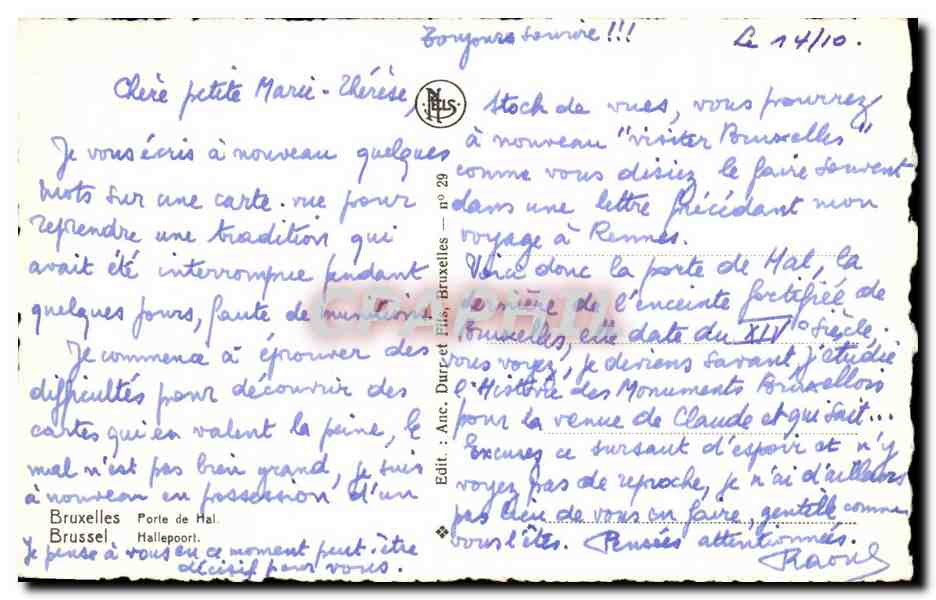 Toujours sourire !!!
Le 14/10.
Chère petite Marie-Thérèse,
Je vous écris à nouveau quelques
mots sur une carte-vue pour
reprendre une tradition qui
avait été interrompue pendant
quelques jours, faute de munitions.
Je commence à éprouver des
difficultés pour découvrir des
cartes qui en valent la peine, le
mal n'est pas bien grand, je suis
à nouveau en possession d'un
Bruxelles Porte de Hal.
Brussel Hallepoort.
Je pense à vous en ce moment peut-être
décisif pour vous.
NELS
Edit. : Anc. Durr et Fils, Bruxelles — n° 29
stock de vues, vous pourrez
à nouveau "visiter Bruxelles"
comme vous disiez le faire souvent
dans une lettre précédant mon
voyage à Rennes.
Voici donc la porte de Hal, la
dernière de l'enceinte fortifiée de
Bruxelles, elle date du XIV° siècle.
vous voyez, je deviens savant, j'étudie
l'Histoire des Monuments Bruxellois
pour la venue de Claude et qui sait...
Excusez ce sursaut d'espoir et n'y
voyez pas de reproche, je n'ai d'ailleurs
pas lieu de vous en faire, gentille comme
vous l'êtes. Pensées attentionnées.
Raoul
CPAPHIL